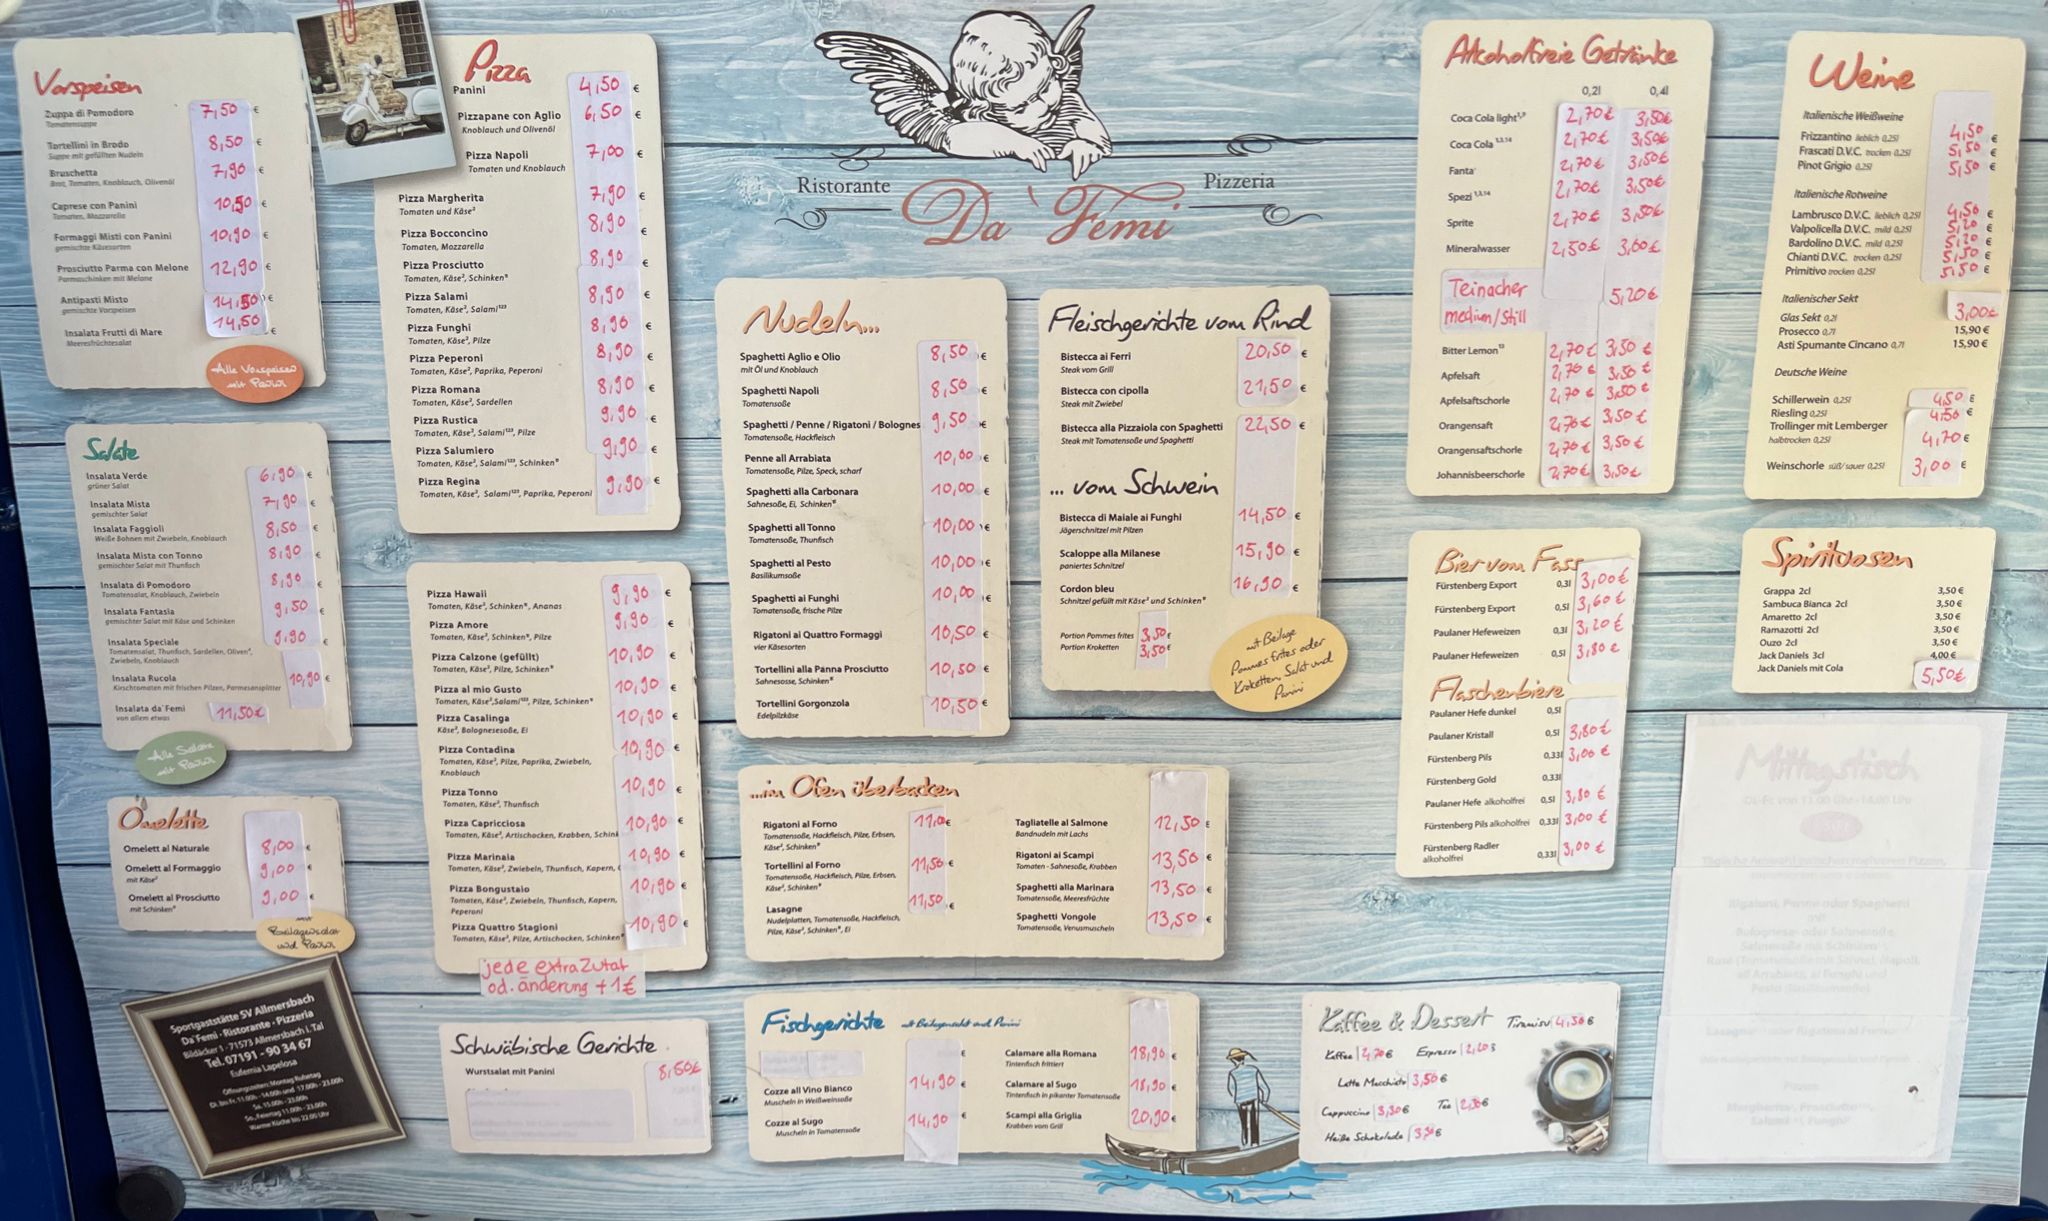 Ristorante
Pizzeria
Da`Femi
Vorspeisen
Zuppa di Pomodoro 7,50 €
Tomatensuppe
Tortellini in Brodo 8,50 €
Suppe mit gefüllten Nudeln
Bruschetta 7,90 €
Brot, Tomaten, Knoblauch, Olivenöl
Caprese con Panini 10,50 €
Tomaten, Mozzarella
Formaggi Misti con Panini 10,90 €
gemischte Käsesorten
Prosciutto Parma con Melone 12,90 €
Parmaschinken mit Melone
Antipasti Misto 14,50 €
gemischte Vorspeisen
Insalata Frutti di Mare 14,50 €
Meeresfrüchtesalat
Alle Vorspeisen
mit Panini
Salate
Insalata Verde 6,90 €
grüner Salat
Insalata Mista 7,90 €
gemischter Salat
Insalata Faggioli 8,50 €
Weiße Bohnen mit Zwiebeln, Knoblauch
Insalata Mista con Tonno 8,90 €
gemischter Salat mit Thunfisch
Insalata di Pomodoro 8,90 €
Tomatensalat, Knoblauch, Zwiebeln
Insalata Fantasia 9,50 €
gemischter Salat mit Käse und Schinken
Insalata Speciale 9,90 €
Tomatensalat, Thunfisch, Sardellen, Oliven⁴,
Zwiebeln, Knoblauch
Insalata Rucola 10,90 €
Kirschtomaten mit frischen Pilzen, Parmesansplitter
Insalata da`Femi 11,50€
von allem etwas
Alle Salate
mit Panini
Omelette
Omelett al Naturale 8,00 €
Omelett al Formaggio 9,00 €
mit Käse²
Omelett al Prosciutto 9,00 €
mit Schinken⁸
mit
Beilagensalat
und Panini
Sportgaststätte SV Allmersbach
Da`Femi · Ristorante · Pizzeria
Bildäcker 1 · 71573 Allmersbach i. Tal
Tel. 07191 - 90 34 67
Eufemia Lapelosa
Öffnungszeiten: Montag Ruhetag
Di. bis Fr. 11.00h - 14.00h und 17.00h - 23.00h
Sa. 15.00h - 23.00h
So., Feiertag 11.00h - 23.00h
Warme Küche bis 22.00 Uhr
Pizza
Panini 4,50 €
Pizzapane con Aglio 6,50 €
Knoblauch und Olivenöl
Pizza Napoli 7,00 €
Tomaten und Knoblauch
Pizza Margherita 7,90 €
Tomaten und Käse²
Pizza Bocconcino 8,90 €
Tomaten, Mozzarella
Pizza Prosciutto 8,90 €
Tomaten, Käse², Schinken⁸
Pizza Salami 8,90 €
Tomaten, Käse², Salami¹²³
Pizza Funghi 8,90 €
Tomaten, Käse², Pilze
Pizza Peperoni 8,90 €
Tomaten, Käse², Paprika, Peperoni
Pizza Romana 8,90 €
Tomaten, Käse², Sardellen
Pizza Rustica 9,90 €
Tomaten, Käse², Salami¹²³, Pilze
Pizza Salumiero 9,90 €
Tomaten, Käse², Salami¹²³, Schinken⁸
Pizza Regina 9,90 €
Tomaten, Käse², Salami¹²³, Paprika, Peperoni
Pizza Hawaii 9,90 €
Tomaten, Käse², Schinken⁸, Ananas
Pizza Amore 9,90 €
Tomaten, Käse², Schinken⁸, Pilze
Pizza Calzone (gefüllt) 10,90 €
Tomaten, Käse², Pilze, Schinken⁸
Pizza al mio Gusto 10,90 €
Tomaten, Käse²,Salami¹²³, Pilze, Schinken⁸
Pizza Casalinga 10,90 €
Käse², Bolognesesoße, Ei
Pizza Contadina 10,90 €
Tomaten, Käse², Pilze, Paprika, Zwiebeln,
Knoblauch
Pizza Tonno 10,90 €
Tomaten, Käse², Thunfisch
Pizza Capricciosa 10,90 €
Tomaten, Käse², Artischocken, Krabben, Schink
Pizza Marinaia 10,90 €
Tomaten, Käse², Zwiebeln, Thunfisch, Kapern,
Pizza Bongustaio 10,90 €
Tomaten, Käse², Zwiebeln, Thunfisch, Kapern,
Peperoni
Pizza Quattro Stagioni 10,90 €
Tomaten, Käse², Pilze, Artischocken, Schinken⁸
jede extra Zutat
od. änderung +1€
Schwäbische Gerichte
Wurstsalat mit Panini 8,50€
Nudeln...
Spaghetti Aglio e Olio 8,50 €
mit Öl und Knoblauch
Spaghetti Napoli 8,50 €
Tomatensoße
Spaghetti / Penne / Rigatoni / Bolognes 9,50 €
Tomatensoße, Hackfleisch
Penne all Arrabiata 10,00 €
Tomatensoße, Pilze, Speck, scharf
Spaghetti alla Carbonara 10,00 €
Sahnesoße, Ei, Schinken⁸
Spaghetti all Tonno 10,00 €
Tomatensoße, Thunfisch
Spaghetti al Pesto 10,00 €
Basilikumsoße
Spaghetti ai Funghi 10,00 €
Tomatensoße, frische Pilze
Rigatoni ai Quattro Formaggi 10,50 €
vier Käsesorten
Tortellini alla Panna Prosciutto 10,50 €
Sahnesosse, Schinken⁸
Tortellini Gorgonzola 10,50 €
Edelpilzkäse
...im Ofen überbacken
Rigatoni al Forno 11,0€
Tomatensoße, Hackfleisch, Pilze, Erbsen,
Käse², Schinken⁸
Tortellini al Forno 11,50 €
Tomatensoße, Hackfleisch, Pilze, Erbsen,
Käse², Schinken⁸
Lasagne 11,50 €
Nudelplatten, Tomatensoße, Hackfleisch,
Pilze, Käse², Schinken⁸, Ei
Tagliatelle al Salmone 12,50 €
Bandnudeln mit Lachs
Rigatoni ai Scampi 13,50 €
Tomaten - Sahnesoße, Krabben
Spaghetti alla Marinara 13,50 €
Tomatensoße, Meeresfrüchte
Spaghetti Vongole 13,50 €
Tomatensoße, Venusmuscheln
Fischgerichte mit Beilagensalat und Panini
Cozze all Vino Bianco 14,90 €
Muscheln in Weißweinsoße
Cozze al Sugo 14,90 €
Muscheln in Tomatensoße
Calamare alla Romana 18,90 €
Tintenfisch frittiert
Calamare al Sugo 18,90 €
Tintenfisch in pikanter Tomatensoße
Scampi alla Griglia 20,90 €
Krabben vom Grill
Fleischgerichte vom Rind
Bistecca ai Ferri 20,50 €
Steak vom Grill
Bistecca con cipolla 21,50 €
Steak mit Zwiebel
Bistecca alla Pizzaiola con Spaghetti 22,50 €
Steak mit Tomatensoße und Spaghetti
... vom Schwein
Bistecca di Maiale ai Funghi 14,50 €
Jägerschnitzel mit Pilzen
Scaloppe alla Milanese 15,90 €
paniertes Schnitzel
Cordon bleu 16,90 €
Schnitzel gefüllt mit Käse² und Schinken⁸
Portion Pommes frites 3,50 €
Portion Kroketten 3,50 €
mit Beilage
Pommes frites oder
Kroketten, Salat und
Panini
Alkoholfreie Getränke
0,2l 0,4l
Coca Cola light¹,⁹ 2,70€ 3,50€
Coca Cola ¹,¹³,¹⁴ 2,70€ 3,50€
Fanta¹ 2,70€ 3,50€
Spezi ¹,¹³,¹⁴ 2,70€ 3,50€
Sprite 2,70€ 3,50€
Mineralwasser 2,50€ 3,00€
Teinacher
medium/still 5,20€
Bitter Lemon¹³ 2,70€ 3,50 €
Apfelsaft 2,70 € 3,50 €
Apfelsaftschorle 2,70 € 3,50 €
Orangensaft 2,70€ 3,50 €
Orangensaftschorle 2,70 € 3,50 €
Johannisbeerschorle 2,70€ 3,50€
Bier vom Fass
Fürstenberg Export 0,3l 3,00€
Fürstenberg Export 0,5l 3,60€
Paulaner Hefeweizen 0,3l 3,20€
Paulaner Hefeweizen 0,5l 3,80€
Flaschenbiere
Paulaner Hefe dunkel 0,5l
Paulaner Kristall 0,5l 3,80€
Fürstenberg Pils 0,33l 3,00€
Fürstenberg Gold 0,33l
Paulaner Hefe alkoholfrei 0,5l 3,80 €
Fürstenberg Pils alkoholfrei 0,33l 3,00 €
Fürstenberg Radler
alkoholfrei 0,33l 3,00 €
Kaffee & Dessert
Tiramisu 4,50€
Kaffee 2,70€ Espresso 2,20€
Latte Macchiato 3,50€
Cappuccino 3,30€ Tee 2,30€
Heiße Schokolade 3,30€
Weine
Italienische Weißweine
Frizzantino lieblich 0,25l 4,50 €
Frascati D.V.C. trocken 0,25l 5,50 €
Pinot Grigio 0,25l 5,50 €
Italienische Rotweine
Lambrusco D.V.C. lieblich 0,25l 4,50 €
Valpolicella D.V.C. mild 0,25l 5,20 €
Bardolino D.V.C. mild 0,25l 5,20 €
Chianti D.V.C. trocken 0,25l 5,50 €
Primitivo trocken 0,25l 5,50 €
Italienischer Sekt
Glas Sekt 0,2l 3,00€
Prosecco 0,7l 15,90 €
Asti Spumante Cincano 0,7l 15,90 €
Deutsche Weine
Schillerwein 0,25l 4,50 €
Riesling 0,25l 4,50 €
Trollinger mit Lemberger
halbtrocken 0,25l 4,70 €
Weinschorle süß/sauer 0,25l 3,00 €
Spirituosen
Grappa 2cl 3,50 €
Sambuca Bianca 2cl 3,50 €
Amaretto 2cl 3,50 €
Ramazotti 2cl 3,50 €
Ouzo 2cl 3,50 €
Jack Daniels 3cl 4,00 €
Jack Daniels mit Cola 5,50€
Mittagstisch